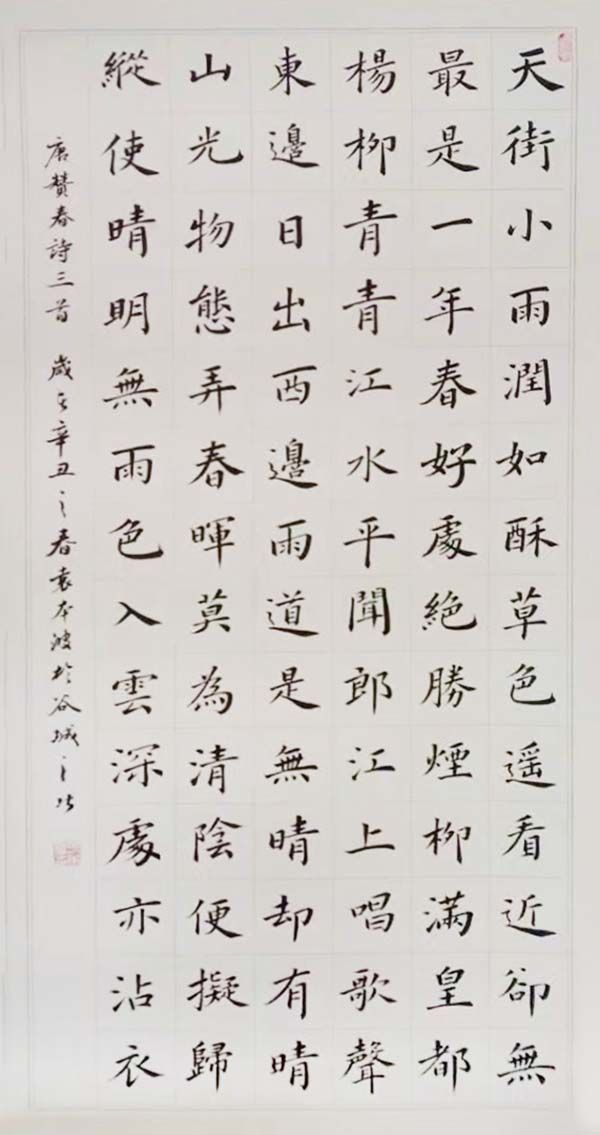 天街小雨潤如酥草色遥看近卻無
最是一年春好處絕勝煙柳滿皇都
楊柳青青江水平聞郎江上唱歌聲
東邊日出西邊雨道是無晴却有晴
山光物態弄春暉莫為清陰便擬歸
縱使晴明無雨色入雲深處亦沾衣
唐贊春詩三首 歲在辛丑之春袁本波於谷城之